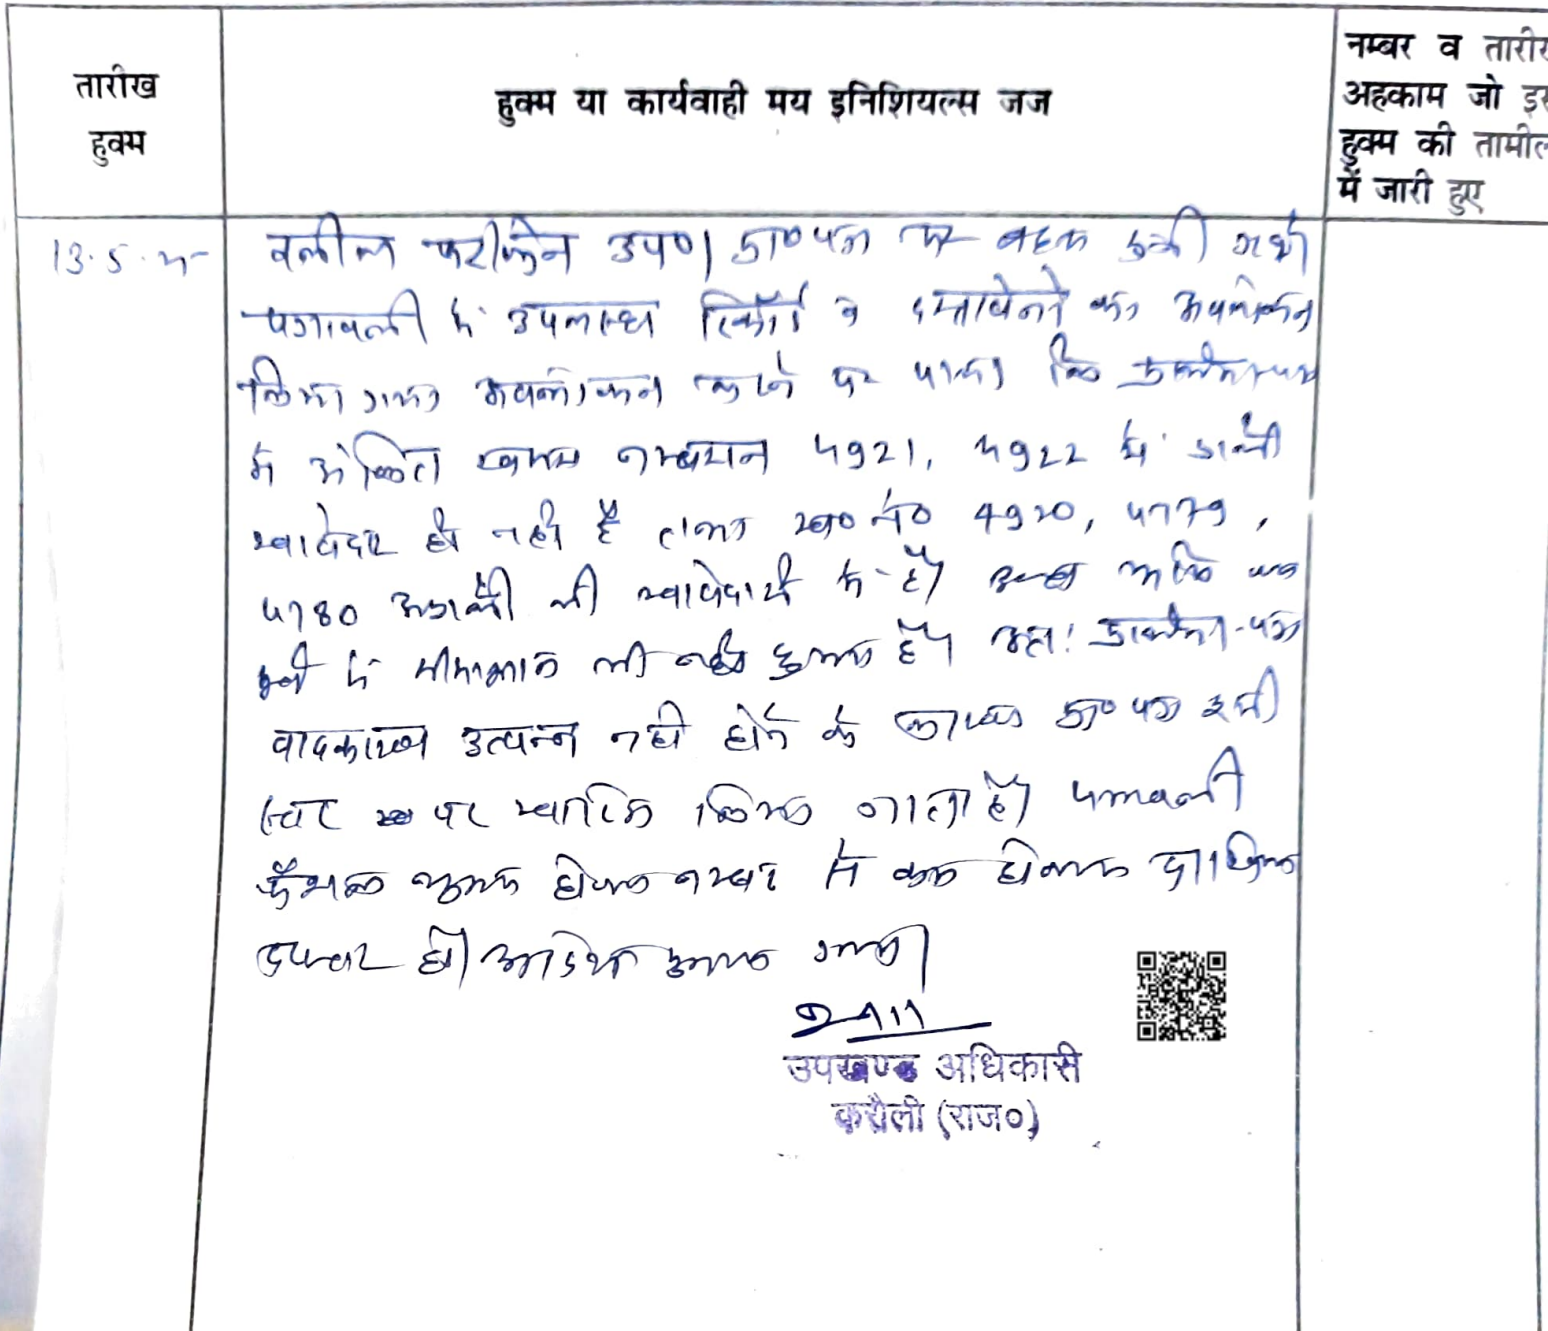 तारीख
हुक्म
हुक्म या कार्यवाही मय इनिशियल्स जज
नम्बर व तारीख
अहकाम जो इस
हुक्म की तामील
में जारी हुए
13.5.
वकील फरीकेन उप0। प्रा0पत्र पर बहस सुनी गयी
पत्रावली में उपलब्ध रिकॉर्ड व दस्तावेजो का अवलोकन
किया गया अवलोकन करने पर पाया कि प्रार्थनापत्र
में अंकित खसरा नम्बरान 4921, 4922 में प्रार्थी
खातेदार ही नही है तथा ख0 नं0 4920, 4779,
4780 की खातेदारी में है।
में सीमाज्ञान भी नही हुआ है। अतः प्रार्थना-पत्र
वादकारण उत्पन्न नही होने के कारण प्रा0 पत्र इसी
स्तर पर खारिज किया जाता है। पत्रावली
फैसल शुमार होकर नम्बर से कम होकर दाखिल
दफ्तर हो। आदेश सुनाया गया।
उपखण्ड अधिकारी
करौली (राज०)